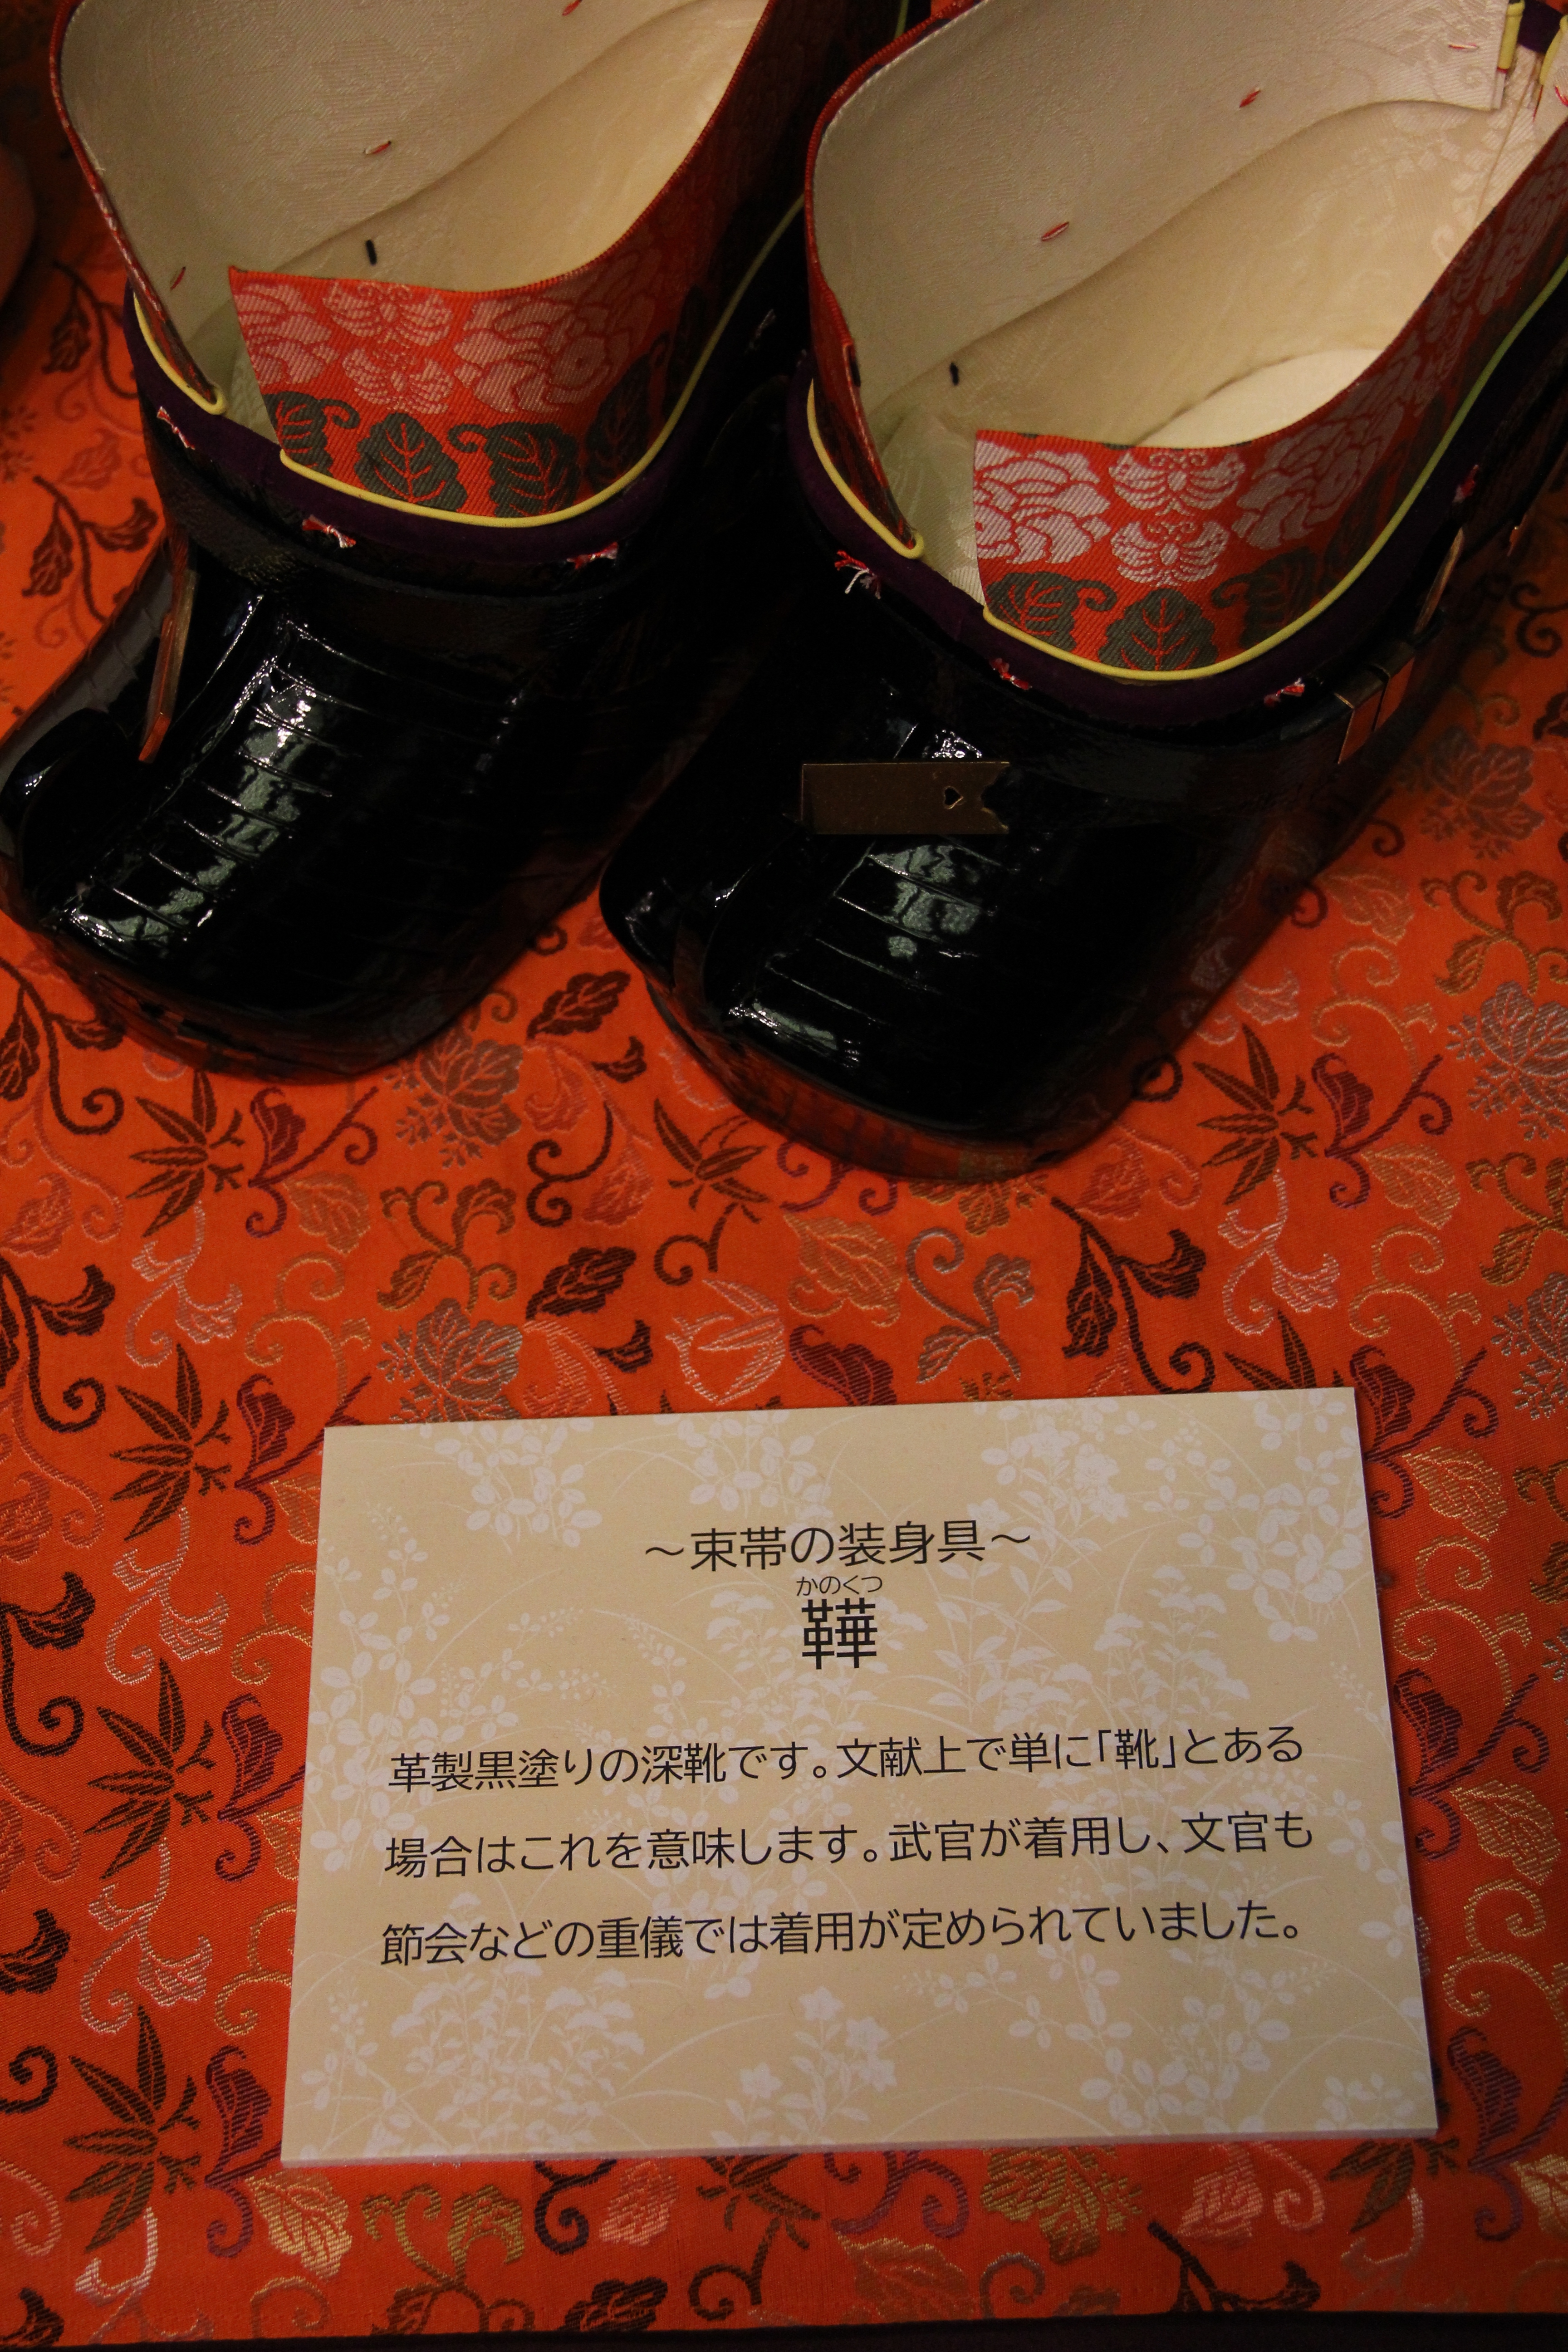 ～束帯の装身具～
かのくつ
鞾
革製黒塗りの深靴です。文献上で単に「靴」とある
場合はこれを意味します。武官が着用し、文官も
節会などの重儀では着用が定められていました。